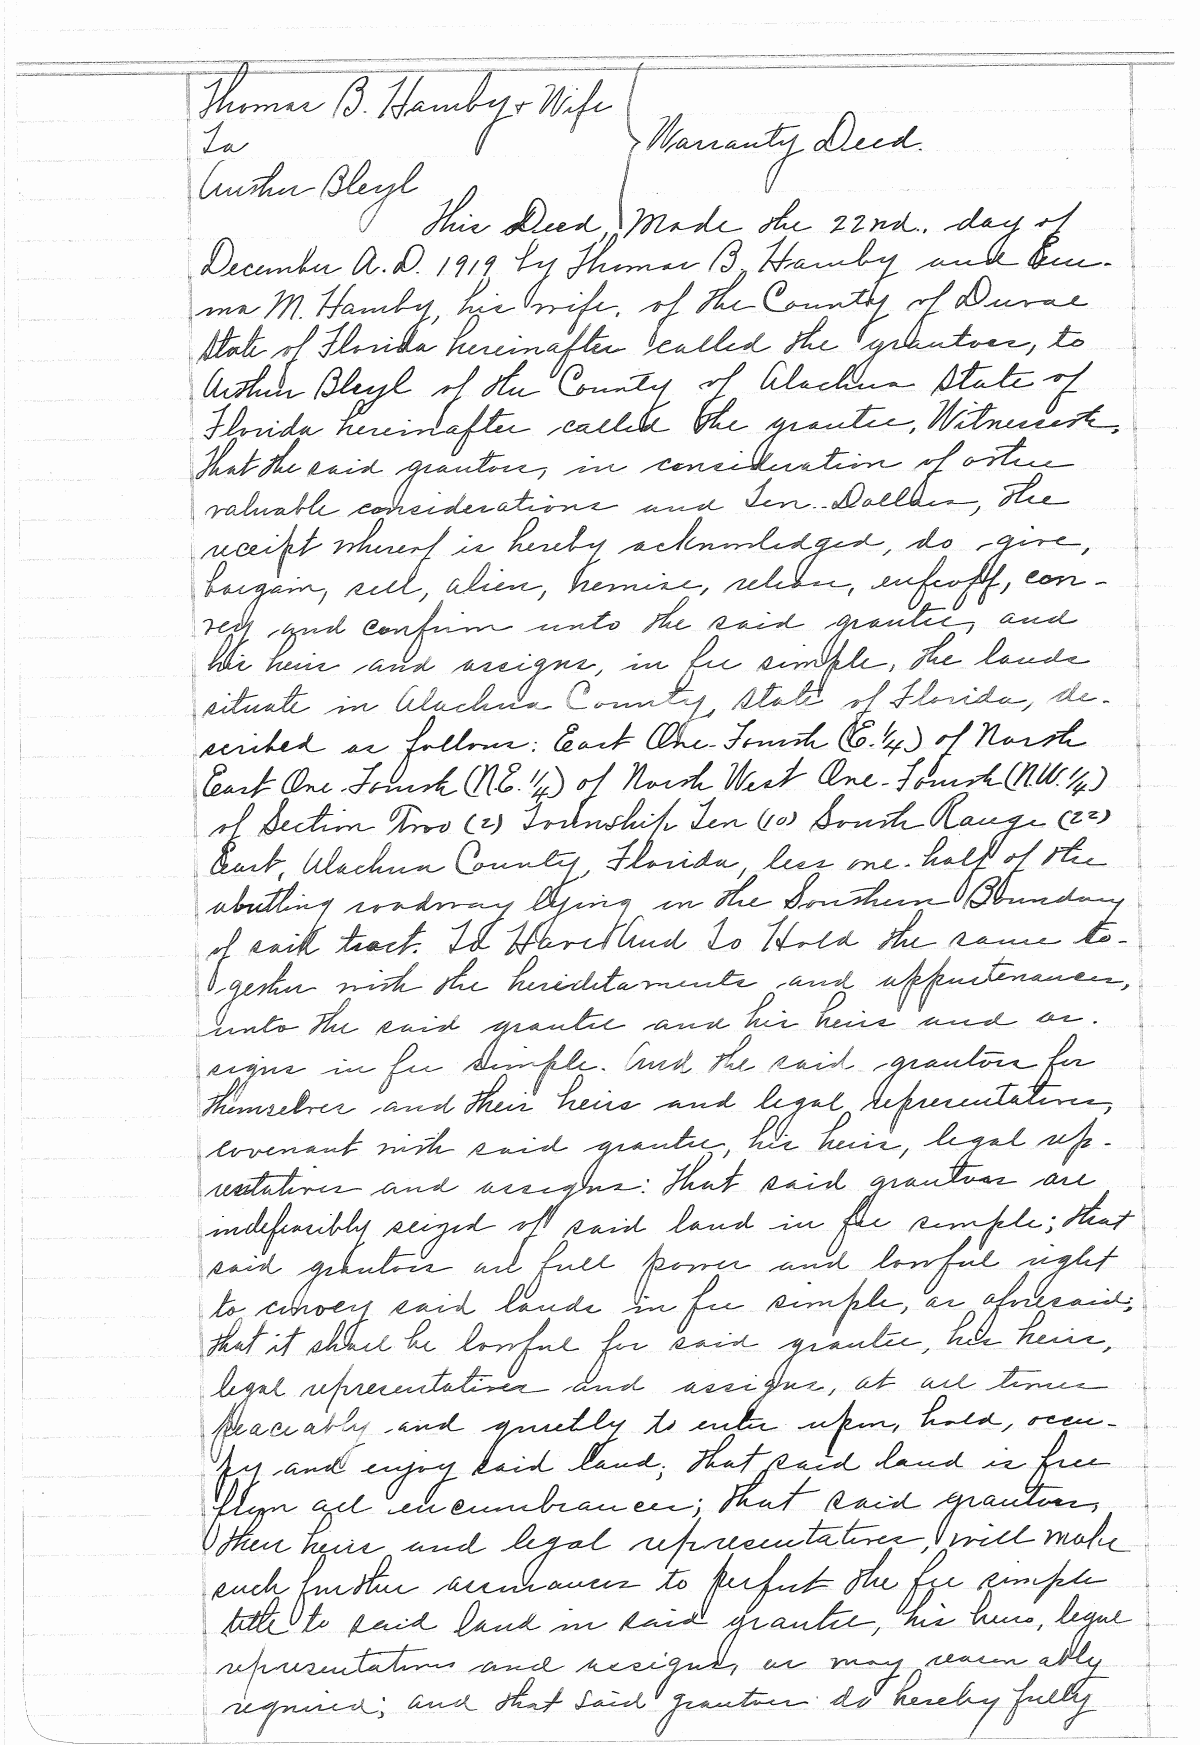 Thomas B. Hamby & Wife
To
Warranty Deed.
Arthur Bleyl
This Deed, Made the 22nd. day of
December A.D. 1919 by Thomas B. Hamby and Em-
ma M. Hamby, his wife, of the County of Duval
State of Florida hereinafter called the grantors, to
Arthur Bleyl of the County of Alachua State of
Florida hereinafter called the grantee, Witnesseth,
That the said grantors, in consideration of other
valuable considerations and Ten Dollars, the
receipt whereof is hereby acknowledged, do give,
bargain, sell, alien, remise, release, enfeoff, con-
vey and confirm unto the said grantee, and
his heirs and assigns, in fee simple, the lands
situate in Alachua County, State of Florida, de-
scribed as follows: East One-Fourth (E.1/4) of North
East One-Fourth (N.E. 1/4) of North West One-Fourth (N.W. 1/4)
of Section Two (2) Township Ten (10) South Range (22)
East, Alachua County, Florida, less one-half of the
abutting roadway lying in the Southern Boundary
of said tract. To Have And To Hold the same to-
gether with the hereditaments and appurtenances,
unto the said grantee and his heirs and as-
signs in fee simple. And the said grantors for
themselves and their heirs and legal representatives,
covenant with said grantee, his heirs, legal rep-
resetatives and assigns: That said grantors are
indefeasibly seized of said land in fee simple; that
said grantors are full power and lawful right
to convey said lands in fee simple, as aforesaid;
that it shall be lawful for said grantee, his heirs,
legal representatives and assigns, at all times
peaceably and quietly to enter upon, hold, occu-
py and enjoy said land; that said land is free
from all encumbrances; that said grantors,
their heirs and legal representatives, will make
such further assurances to perfect the fee simple
title to said land in said grantee, his heirs, legal
representatives and assigns, as may reasonably
required; and that said grantors do hereby fully